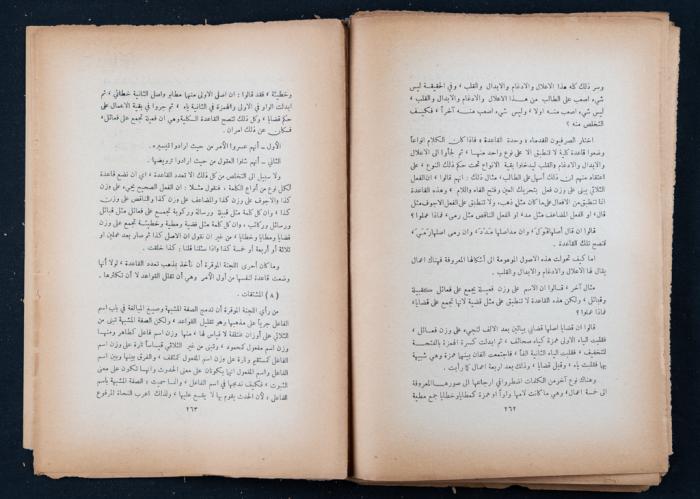 وسر ذلك كله هذا الاعلال والادغام والابدال والقلب ، وفي الحقيقة ليس
شيء اصعب على الطالب من هذا الاعلال والادغام والابدال والقلب ،
ليس شيء اصعب منه اولا ، وليس شيء اصعب منه آخراً ، فكيف
التخلص منه ؟
اختار الصرفيون القدماء ، وحدة القاعدة ، فاذا كان الكلام انواعاً
وضعوا قاعدة كلية لا تنطبق الا على نوع واحد منها ، ثم لجأوا الى الاعلال
والابدال والادغام والقلب ليدخلوا بقية الانواع تحت حكم ذلك النوع ، على
اعتقاد منهم ان ذلك أسهل على الطالب ، مثال ذلك : انهم قالوا ، ان الفعل
الثلاثي يبنى على وزن فعل بتحريك العين وفتح الفاء واللام ، وهذه القاعدة
انما تنطبق من الافعال على ما كان مثل ذهب، ولا تنطبق على الفعل الاجوف مثل
قال، او الفعل المضاعف مثل مد، او الفعل الناقص مثل رمى، فماذا عملوا ؟
قالوا ان قال أصلها قَوَلَ ، وان مد اصلها مَدَدَ ، وان رمى اصلها رَمَيَ ،
فتصح تلك القاعدة .
اما كيف تحولت هذه الاصول الموهومة الى أشكالها المعروفة فهناك اعمال
يقال لها الاعلال والادغام والابدال والقلب .
مثال آخر ، قالوا ان الاسم على وزن فعيلة يجمع على فعائل ككتيبة
وقبائل ، ولكن هذه القاعدة لا تنطبق على مثل قضية لانها تجمع على قضايا،
فماذا عملوا ؟
قالوا ان قضايا اصلها قضايي بيائين بعد الالف لتجيء على وزن فعائل ،
فقلبت الياء الاولى همزة كياء صحائف ، ثم ابدلت كسرة الهمزة بالفتحة
لتخفيف ، فقلبت الياء الثانية الفا ، فاجتمعت الفان بينهما همزة وهي شبيهة
بها فقلبت ياء ، وقيل قضايا ، وذلك بعد اربعة اعمال كما رأيت .
وهناك نوع آخر من الكلمات اضطروا في ارجاعها الى صورها المعروفة
الى خمسة اعمال، وهي ما كانت لامها واواً او همزة كمطايا وخطايا جمع مطية
٢٦٢
وخطيئة ، فقد قالوا : ان اصل الاولى منهما مطايو واصل الثانية خطائيء ، ثم
ابدلت الواو في الاولى والهمزة في الثانية ياء ، ثم جروا في بقية الاعمال على
حكم قضايا ، وكل ذلك لتصح القاعدة الكلية وهي ان فعيلة تجمع على فعائل،
فكان عن ذلك امران .
الأول ــ أنهم عسروا الأمر من حيث ارادوا تيسيره .
الثاني ــ أنهم شلوا العقول من حيث ارادوا ترويضها .
ولا سبيل الى التخلص من كل ذلك الا تعدد القاعدة ، اي ان نضع قاعدة
لكل نوع من أنواع الكلمة ، فنقول مثلا : ان الفعل الصحيح يجيء على وزن
كذا والاجوف على وزن كذا والمضاعف على وزن كذا والناقص على وزن
كذا ، وان كل كلمة مثل قبيلة ورسالة وركوبة تجمع على فعائل مثل قبائل
ورسائل وركائب ، وان كل كلمة مثل قضية ومطية وخطيئة تجمع على وزن
قضايا ومطايا وخطايا ، من غير ان نقول ان الاصل كذا ثم صار بعد عملين او
ثلاثة أو أربعة أو خمسة كذا واذا سئلنا قلنا : كذا خلقت .
وما كان أحرى اللجنة الموقرة أن تأخذ بمذهب تعدد القاعدة ، لولا أنها
وضعت قاعدة لنفسها من أول الأمر وهي أن تقلل القواعد لا أن تكثرها .
( ٨ ) المشتقات .
من رأي اللجنة الموقرة أن تدمج الصفة المشبهة وصيغ المبالغة في باب اسم
الفاعل جرياً على مذهبها وهو تقليل القواعد ، ولكن الصفة المشبهة تبنى من
الثلاثي على أوزان متفقة لا قياس لها ، منها وزن اسم فاعل كطاهر ومنها
وزن اسم مفعول كمحمود ، وتبنى من غير الثلاثي قياساً تارة على وزن اسم
الفاعل كمستقيم وتارة على وزن اسم المفعول ، والفرق بينها وبين اسم
الفاعل واسم المفعول انهما يكونان على معنى الحدوث وانها تكون على معنى
الثبوت ، فكيف ندمجها في اسم الفاعل ، وانما سميت : الصفة المشبهة باسم
الفاعل ، لأن الحدث يقوم بها لا يقع عليها ، ولذلك اعرب النحاة المرفوع
٢٦٣